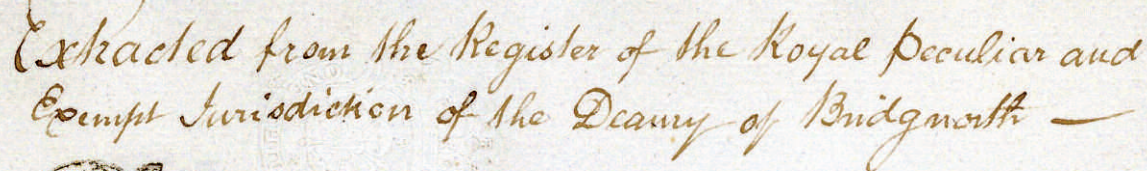 Extracted from the Register of the Royal Peculiar and
Exempt Jurisdiction of the Deanry of Bridgnorth —